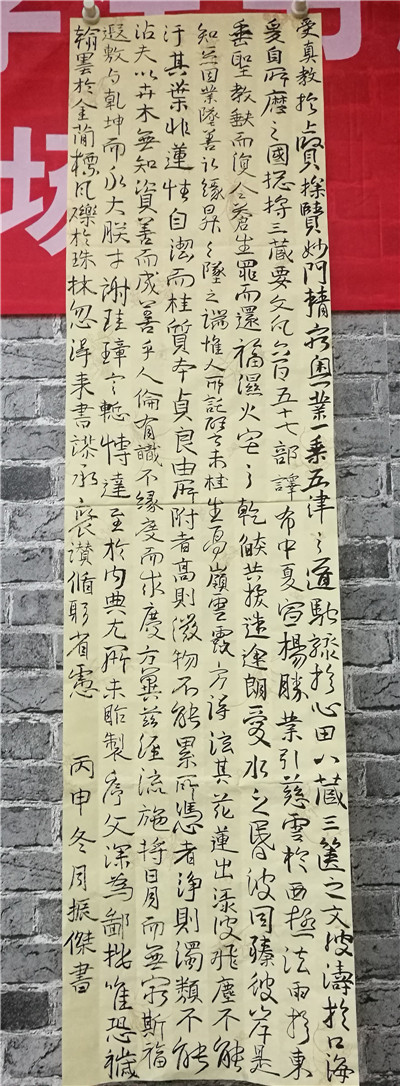 受真教於上賢探賾妙門精窮奧業一乘五律之道馳驟於心田八藏三篋之文波濤於口海
爰自所歷之國總將三藏要文凡六百五十七部譯布中夏宣揚勝業引慈雲於西極法雨於東
垂聖教缺而復全蒼生罪而還福濕火宅之乾燄共拔迷途朗愛水之昏波同臻彼岸是
知惡因業墜善以緣昇昇墜之端惟人所託譬夫桂生高嶺雲露方得泫其花蓮出淥波飛塵不能
汙其葉非蓮性自潔而桂質本貞良由所附者高則微物不能累所憑者淨則濁類不能
沾夫以卉木無知資善而成善乎人倫有識不緣慶而求慶方冀茲經流施將日月而無窮斯福
遐敷与乾坤而永大朕才謝珪璋言慙博達至於內典尤所未昨製序文深為鄙拙唯恐穢
翰墨於金簡標瓦礫於珠林忽得来書謬承褒讚循躬省慮
丙申冬周振傑書
场